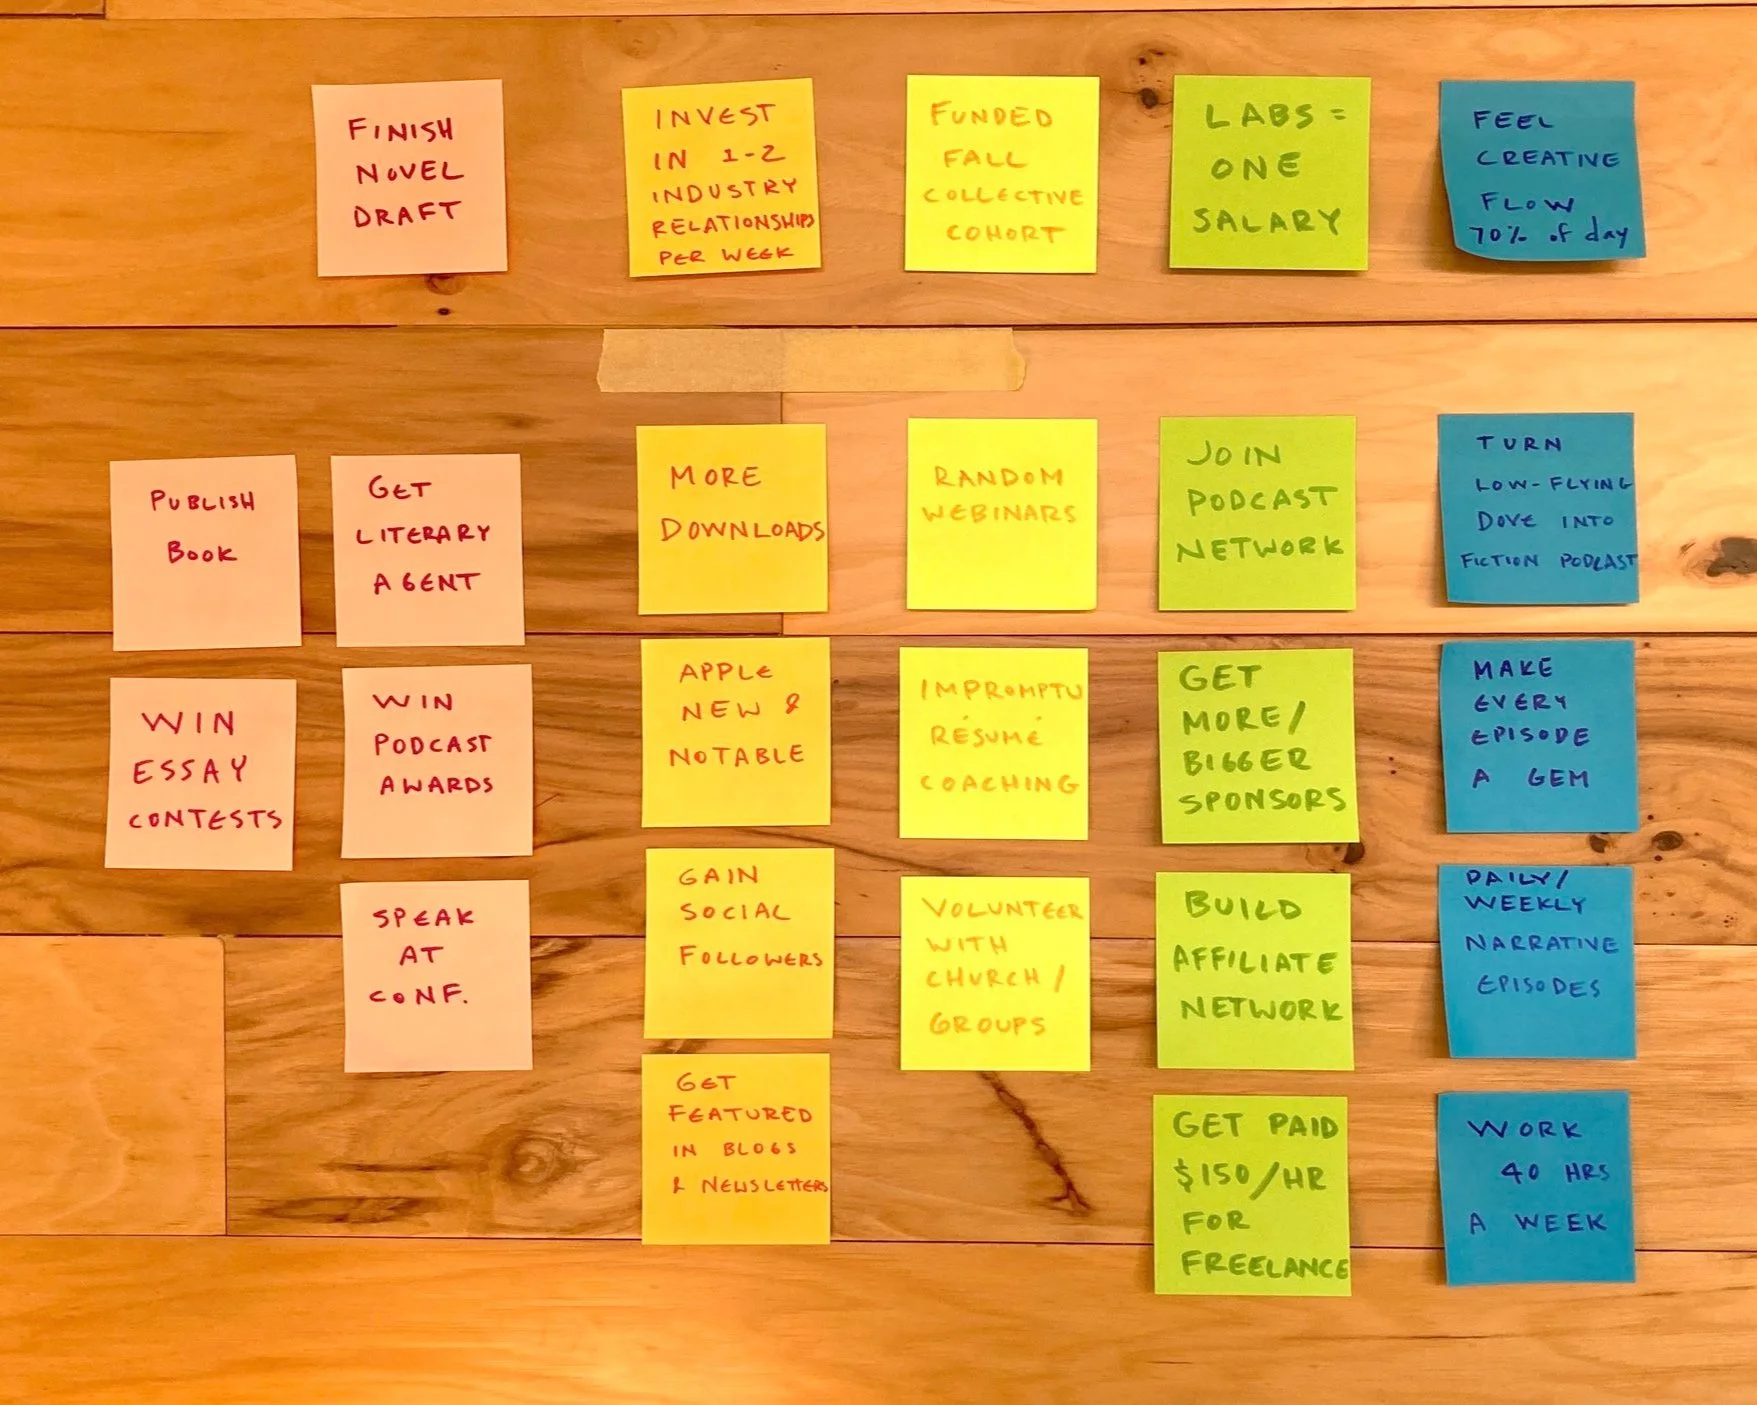 FINISH
NOVEL
DRAFT
INVEST
IN 1-2
INDUSTRY
RELATIONSHIPS
PER WEEK
FUNDED
FALL
COLLECTIVE
COHORT
LABS =
ONE
SALARY
FEEL
CREATIVE
FLOW
70% of day
PUBLISH
BOOK
GET
LITERARY
AGENT
MORE
DOWNLOADS
RANDOM
WEBINARS
JOIN
PODCAST
NETWORK
TURN
LOW-FLYING
DOVE INTO
FICTION PODCAST
WIN
ESSAY
CONTESTS
WIN
PODCAST
AWARDS
APPLE
NEW &
NOTABLE
IMPROMPTU
RÉSUMÉ
COACHING
GET
MORE/
BIGGER
SPONSORS
MAKE
EVERY
EPISODE
A GEM
SPEAK
AT
CONF.
GAIN
SOCIAL
FOLLOWERS
VOLUNTEER
WITH
CHURCH/
GROUPS
BUILD
AFFILIATE
NETWORK
DAILY/
WEEKLY
NARRATIVE
EPISODES
GET
FEATURED
IN BLOGS
& NEWSLETTERS
GET PAID
$150/HR
FOR
FREELANCE
WORK
40 HRS
A WEEK